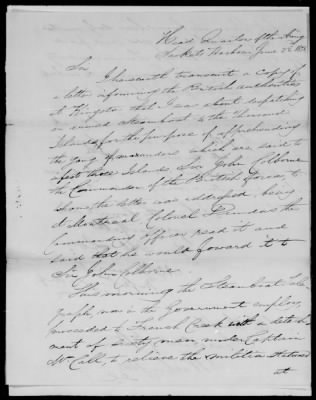 Head Quarters of the Army
Sackets Harbour, June 22 1838
Sir,
I herewith transmit a copy of
a letter informing the British authorities
at Kingston that I was about despatching
an armed Steamboat to the Thousand
Islands for the purpose of apprehending
the gang of marauders which are said to
infest those Islands. Sir John Colborne
the Commander of the British forces, to
whom the letter was addressed, being
at Montreal Colonel Dundas the
commanding officer read it and
said that he would forward it to
Sir John Colborne.
This morning the Steamboat Tele-
graph, now in the Government employ,
proceeded to French Creek with a detach-
ment of sixty men, under Captain
McCall, to relieve the militia stationed
at